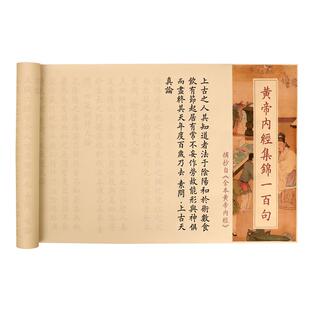 黄帝内經集錦一百句
摘抄自《全本黃帝内經》
上古之人其知道者法于陰陽和於術數食
飲有節起居有常不妄作勞故能形與神俱
而盡終其天年度百歲乃去 素問·上古天
真論